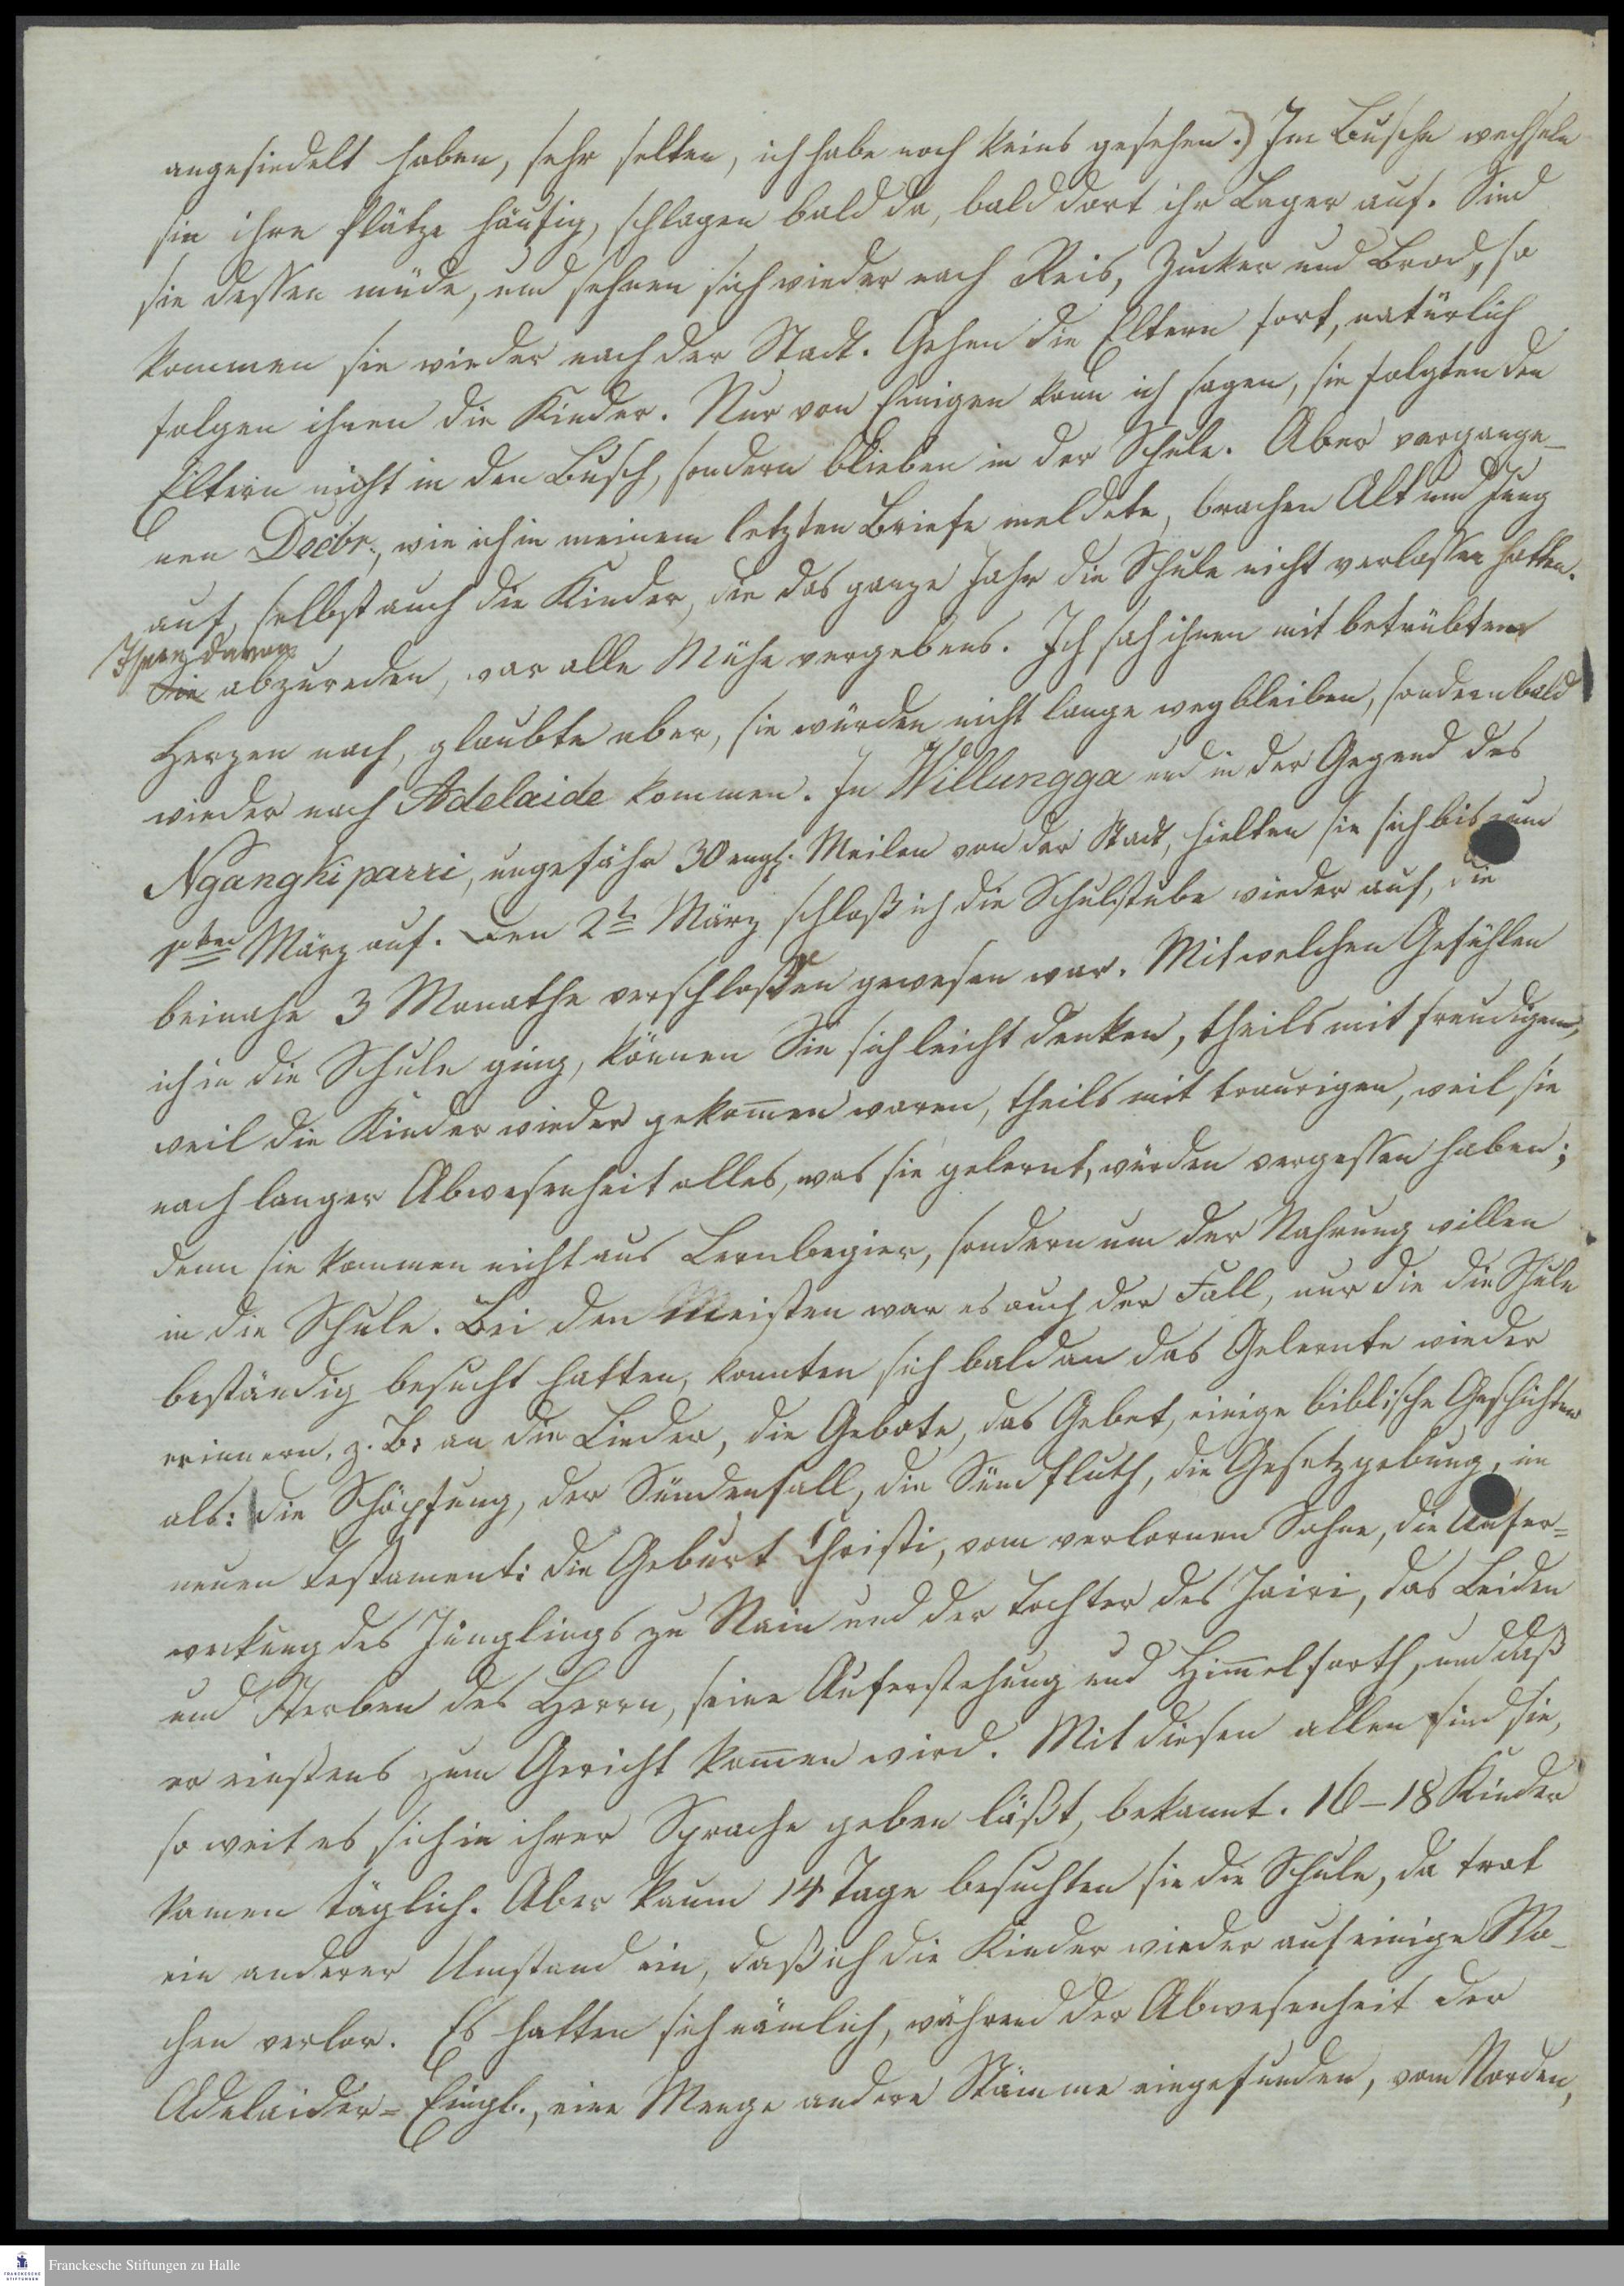 angesiedelt haben, sehr selten, ich habe noch keins gesehen.) Im Busche wechseln
sie ihre Plätze häufig, schlagen bald da, bald dort ihr Lager auf. Sind
sie dessen müde, und sehnen sich wieder nach Reis, Zucker und Brod, so
kommen sie wieder nach der Stadt. Gehen die Eltern fort, natürlich
folgen ihnen die Kinder. Nur von Einigen kann ich sagen, sie folgten den
Eltern nicht in den Busch, sondern blieben in der Schule. Aber vergange-
nen Decbr., wie ich in meinem letzten Briefe meldete, brachen Alt und Jung
auf, selbst auch die Kinder, die das ganze Jahr die Schule nicht verlassen hatten.
Ihnen davon
Sie abzureden, war alle Mühe vergebens. Ich sah ihnen mit betrübtem
Herzen nach, glaubte aber, sie würden nicht lange wegbleiben, sondern bald
wieder nach Adelaide kommen. In Willungga und in der Gegend des
Ngangkiparri, ungefähr 30 engl. Meilen von der Stadt, hielten sie sich bis zum
1sten März auf. Den 2t März schloß ich die Schulstube wieder auf, die
beinahe 3 Monathe verschlossen gewesen war. Mit welchen Gefühlen
ich in die Schule ging, können Sie sich leicht denken, theils mit freudigen,
weil die Kinder wieder gekom̅en waren, theils mit traurigen, weil sie
nach langer Abwesenheit alles, was sie gelernt, würden vergessen haben;
denn sie kommen nicht aus Lernbegier, sondern um der Nahrung willen
in die Schule. Bei den Meisten war es auch der Fall, nur die die Schule
beständig besucht hatten, konnten sich bald an das Gelernte wieder
erinnern, z. B. an die Lieder, die Gebote, das Gebet, einige biblische Geschichten
als: die Schöpfung, der Sündenfall, die Sündfluth, die Gesetzgebung, im
neuen Testament: die Geburt Christi, vom verlornen Sohne, die Aufer=
weckung des Jünglings zu Nain und der Tochter des Jairi, das Leiden
und Sterben des Herrn, seine Auferstehung und Him̅elfarth, und daß
er einstens zum Gericht kom̅en wird. Mit diesen allen sind sie,
so weit es sich in ihrer Sprache geben läßt, bekannt. 16-18 Kinder
kamen täglich. Aber kaum 14 Tage besuchten sie die Schule, da trat
ein anderer Umstand ein, daß ich die Kinder wieder auf einige Wo-
chen verlor. Es hatten sich nämlich, während der Abwesenheit der
Adelaider= Eingb., eine Menge andere Stämme eingefunden, vom Norden,
Franckesche Stiftungen zu Halle